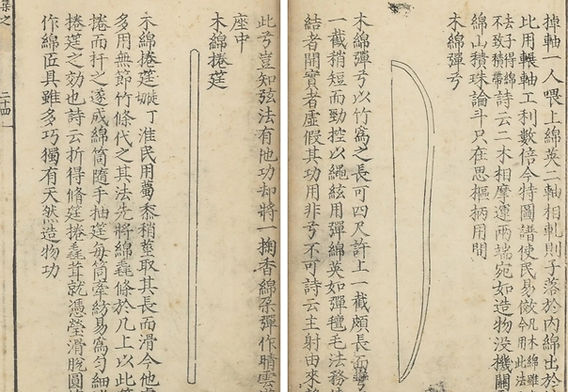 掉軸一人喂上綿英二軸相軋則子落於內綿出於
比用輾軸工利數倍今特圖譜使民易傚凡木綿雖今用此法
法子得綿不致積滯詩云二木相摩運兩端宛如造物沒機關
綿山積珠論斗只在思樞柄用間
木綿彈弓
木綿彈弓以竹為之長可四尺許上一截頗長而彎
一截稍短而勁控以繩絃用彈綿英如彈氊毛法務
結者開實者虛假其功用非弓不可詩云主射由來
此弓豈知弦法有他功却將一掬香綿朶彈作晴雲
座中
木綿捲筳
木綿捲筳淮民用蜀黍稍莖取其長而滑今他處
多用無節竹條代之其法先將綿毳條於几上以此筳
捲而扞之遂成綿筒隨手抽筳每筒牽紡易為勻細
捲筳之効也詩云折得脩筳捲毳茸就憑瑩滑脫圓
作綿匠具雖多巧獨有天然造物功
二十四